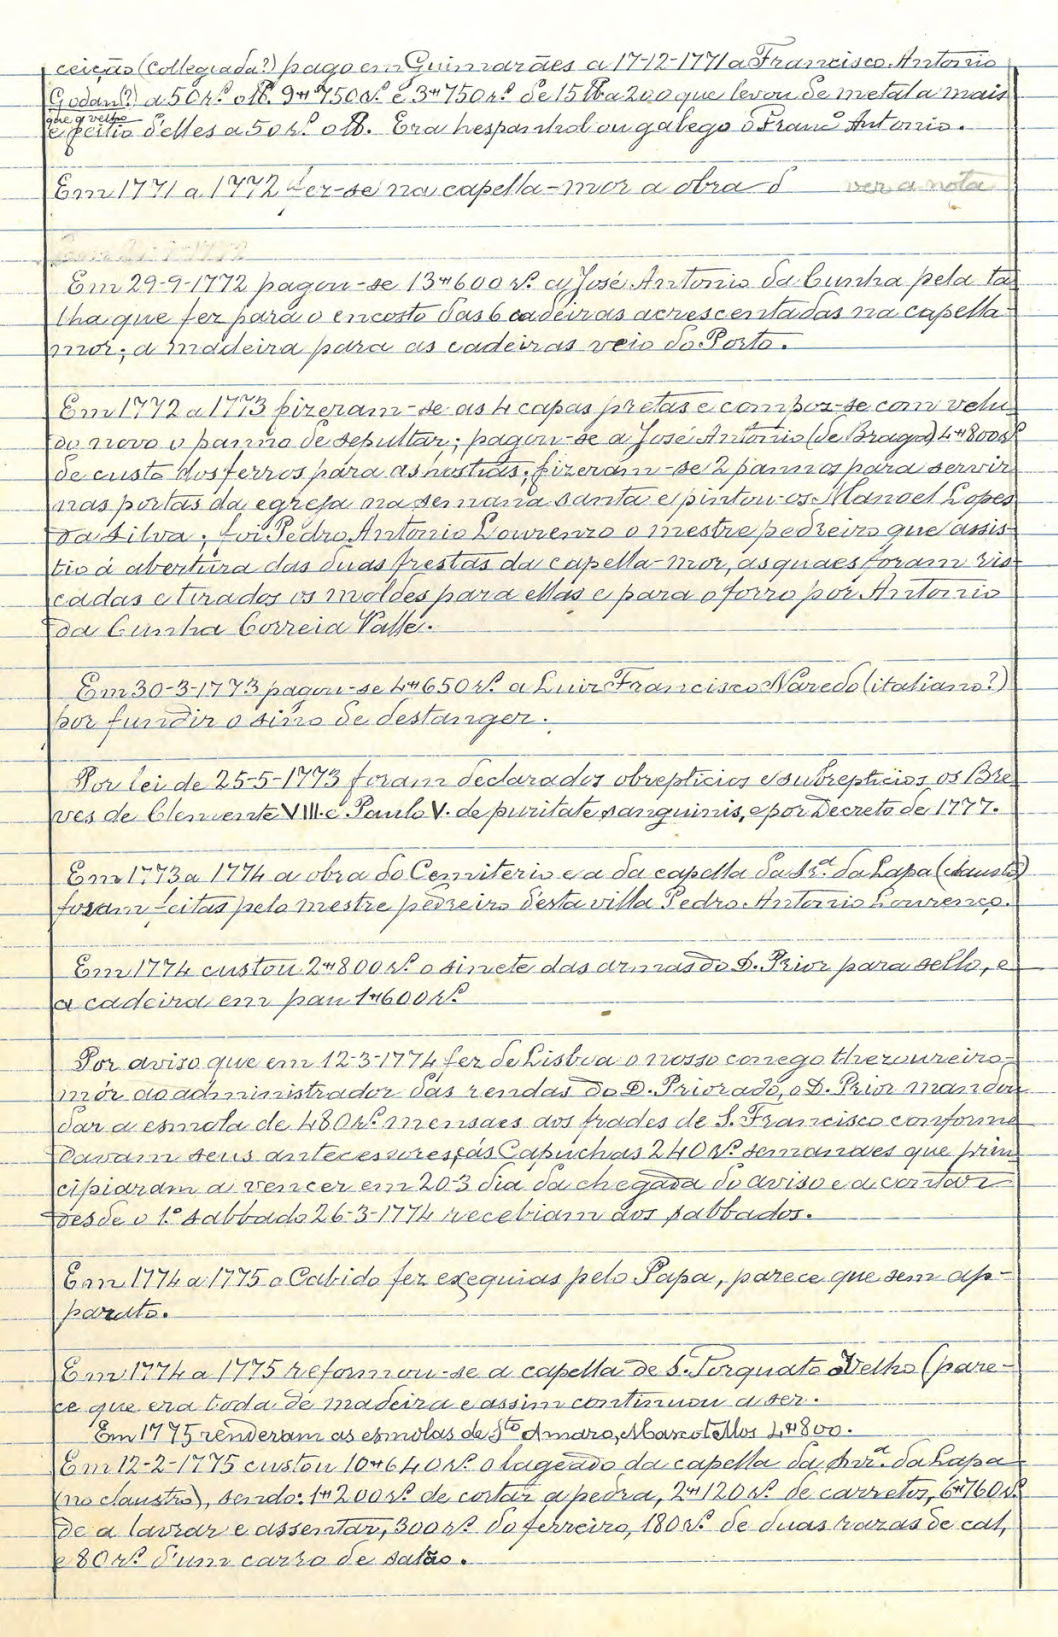 ceição (collegiada?) pago em Guimarães a 17-12-1771 a Francisco Antonio
Godan(?) a 50 rs. o lb. 9$750 rs. e 3$750 rs. de 15 lb a 200 que levou de metal a mais
que o velho
e feitio d'elles a 50 rs. o lb. Era hespanhol ou galego o Franco Antonio.
Em 1771 a 1772 fez-se na capella-mor a obra d ver a nota
Em 29-9-1772 pagou-se 13$600 rs. a José Antonio da Cunha pela ta
lha que fez para o encosto das 6 cadeiras acrescentadas na capella-
mor; a madeira para as cadeiras veio do Porto.
Em 1772 a 1773 fizeram-se as 4 capas pretas e compoz-se com velu
do novo o panno de sepultar; pagou-se a José Antonio (de Braga) 4$800 rs
de custo dos ferros para as hostias; fizeram-se 2 pannos para servir
nas portas da egreja na semana santa e pintou-os Manoel Lopes
da Silva; foi Pedro Antonio Lourenzo o mestre pedreiro que assis-
tio á abertura das duas frestas da capella-mor, as quaes foram ris-
cadas e tirados os moldes para ellas e para o forro por Antonio
da Cunha Correia Valle.
Em 30-3-1773 pagou-se 4$650 rs. a Luiz Francisco Naredo (italiano?)
por fundir o sino de destanger.
Por lei de 25-5-1773 foram declarados obrepticios e subrepticios os Bre
ves de Clemente VIII. e Paulo V. de puritate sanguinis, e por Decreto de 1777.
Em 1773 a 1774 a obra do Cemiterio e a da capella da Sr.ª da Lapa (claustro)
foram feitas pelo mestre pedreiro d'esta villa Pedro Antonio Lourenço.
Em 1774 custou 2$800 rs. o sinete das armas do D. Prior para sello, e
a cadeira em pau 1$600 rs.
Por aviso que em 12-3-1774 fez de Lisboa o nosso conego thezoureiro-
mór ao administrador das rendas do D. Priorado, o D. Prior mandou
dar a esmola de 480 rs. mensaes aos frades de S. Francisco conforme
davam seus antecessores, ás Capuchas 240 rs. semanaes que prin
cipiaram a vencer em 20-3 dia da chegada do aviso e a contar
desde o 1.º sabbado 26-3-1774 recebiam aos sabbados.
Em 1774 a 1775 o Cabido fez exequias pelo Papa, parece que sem ap-
parato.
Em 1774 a 1775 reformou-se a capella de S. Torquato o Velho (pare-
ce que era toda de madeira e assim continuou a ser.
Em 1775 renderam as esmolas de Sto Amaro, Mascotellos 4$800.
Em 12-2-1775 custou 10$640 rs. o lageado da capella da Snr.ª da Lapa
(no claustro), sendo: 1$200 rs. de cortar a pedra, 2$120 rs. de carretos, 6$760 rs
de a lavrar e assentar, 300 rs. do ferreiro, 180 rs. de duas razas de cal,
e 80 rs. d'um carro de salão.